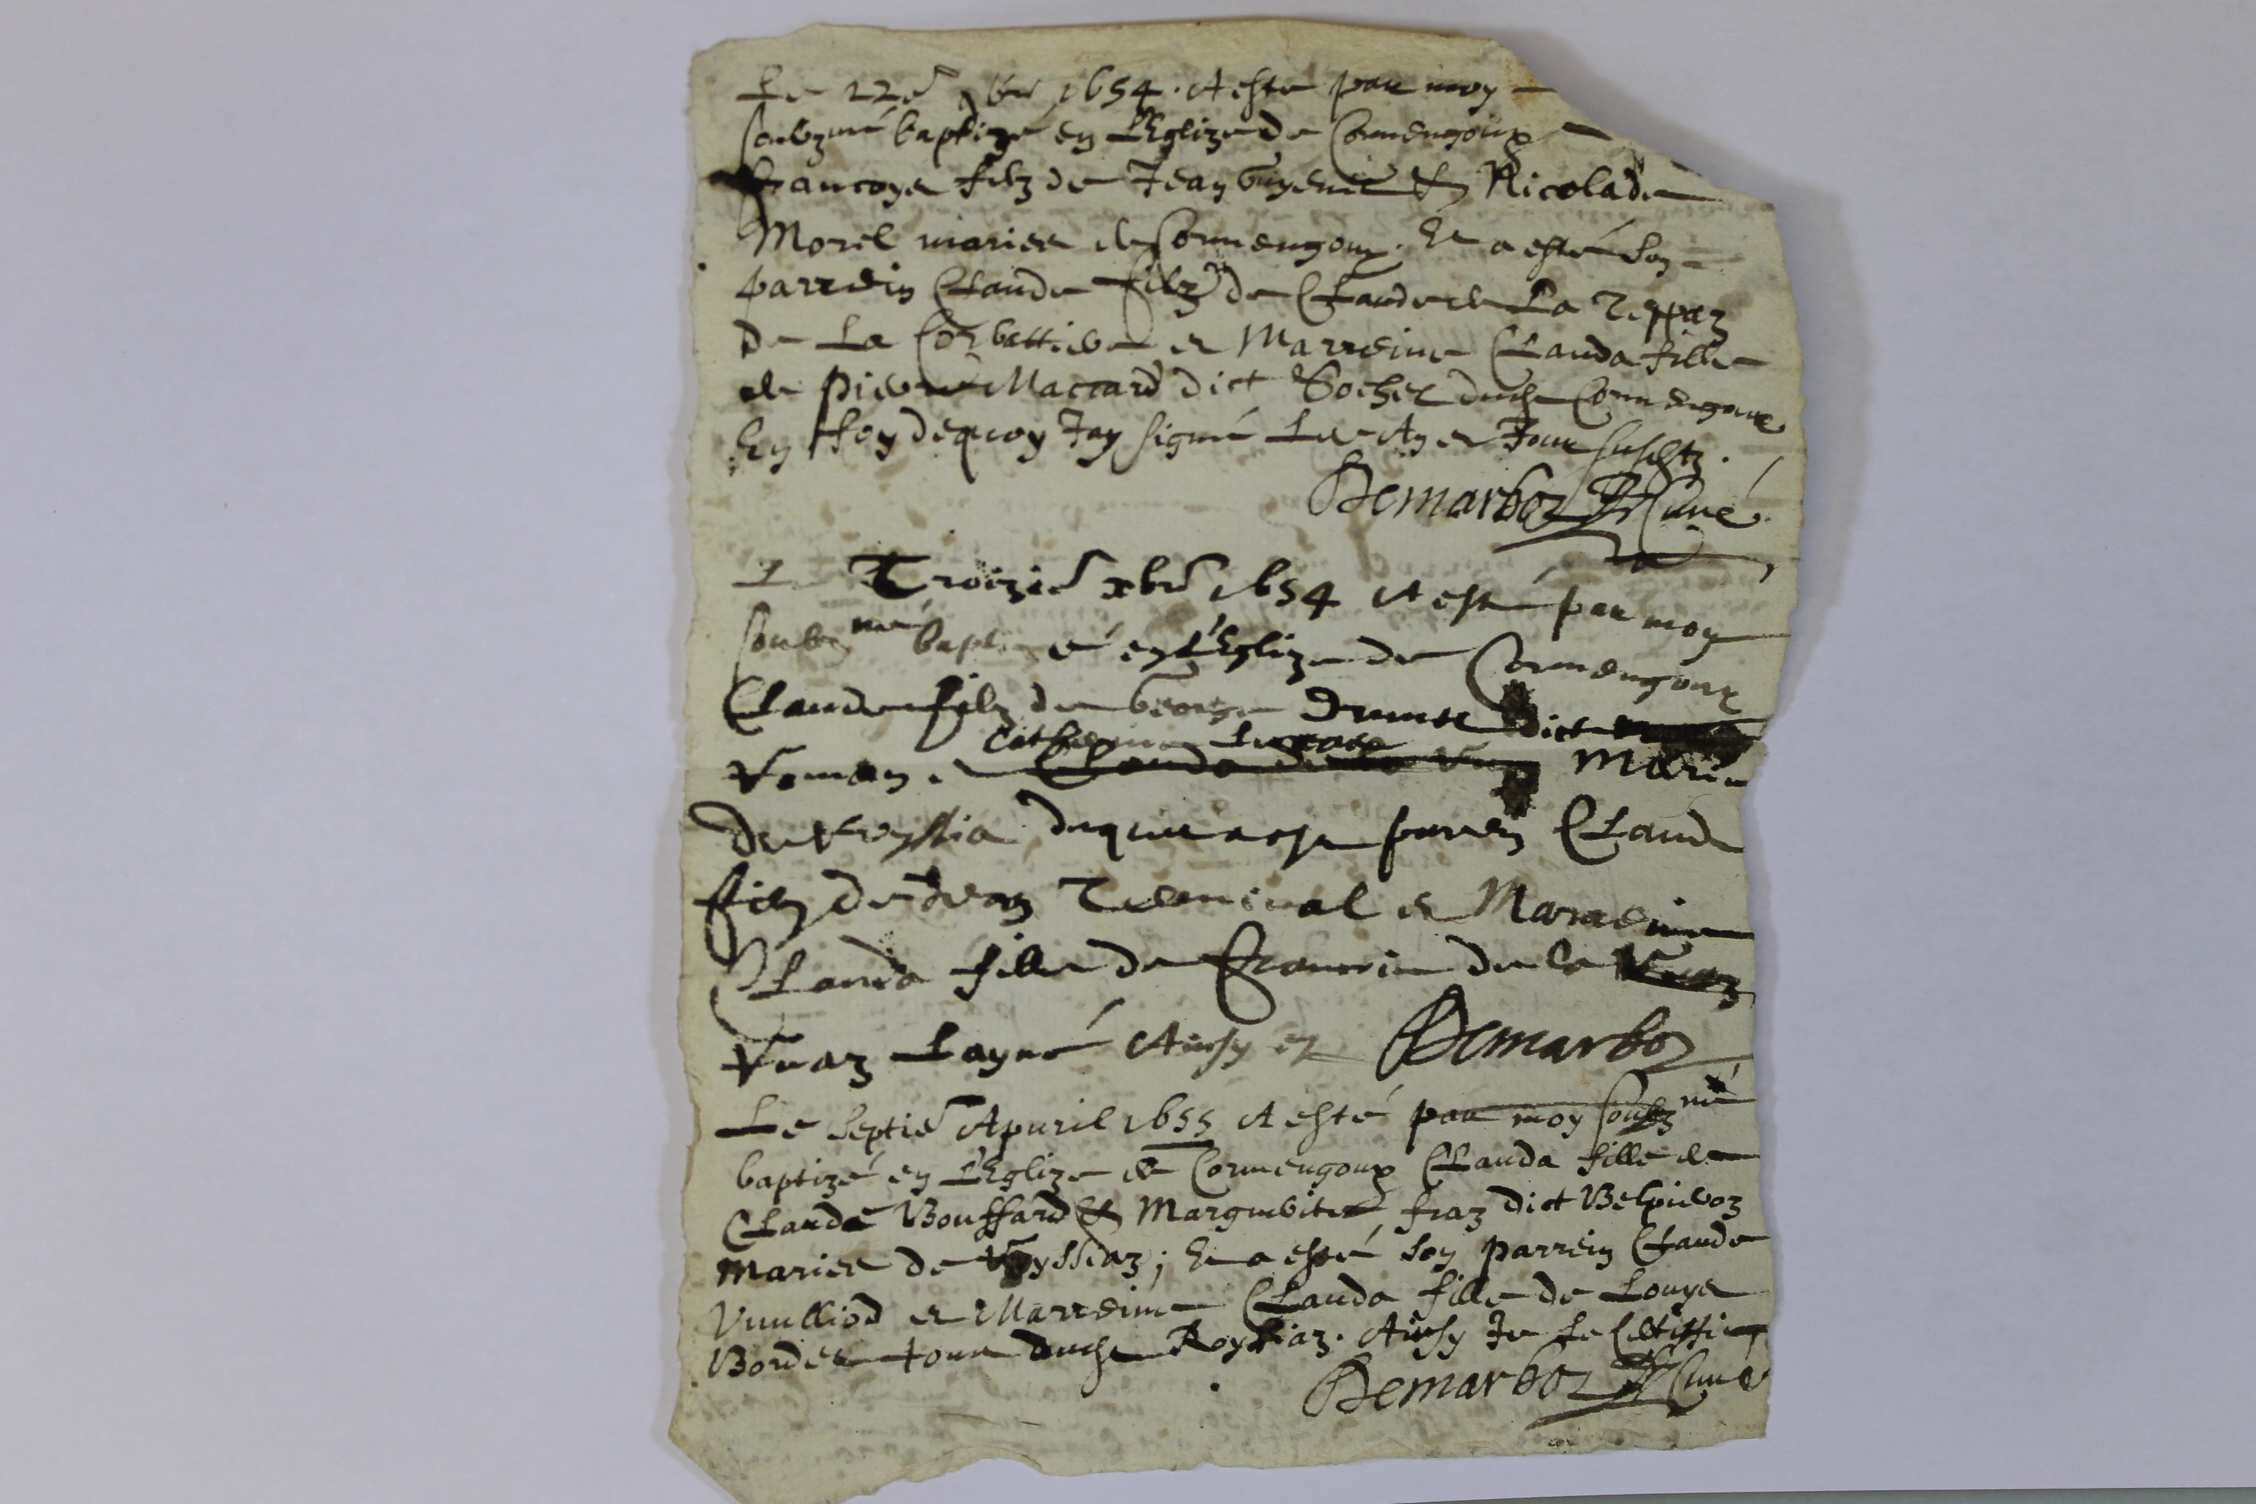 Le 22e 9bre 1654. A este par moy
soubzné baptizé en L'Eglize de Cormengoux
francoys filz de Jean Guyenet & Nicolade
Morel mariez de Cormengoux. Et a esté son
parrein Claude filz de Claude de La Teppaz
de La Corbattiere et Marreine Clauda fille
de Pierre Maccard dict Bochet dudt Cormengoux
En foy dequoy Jay signé Les An et Jour susdtz.
Demarboz Curé
Le Troizie xbre 1654 A esté par moy
soubzné baptizé en L'Eglize de Cormengoux
Claude filz de George dict
Roman et Catherine Clauda Marie
de Reyssia parrein Claude
filz de Jean et Marreine
Clauda fille de Francois de la Vuaz
Vuaz Layné Ainsy est Demarboz
Le Septie Apuril 1655 A esté par moy soubzné
baptizé en L'Eglize de Cormengoux Clauda fille de
Claude Bouffard & Marguerite fraz dict Belpieroz
mariez de Royssiaz; Et a esté son parrein Claude
Vuilliod et Marreine Clauda fille de Louys
Bordes tous dudt Royssiaz. Ainsy Je Le Certiffie
Demarboz Curé